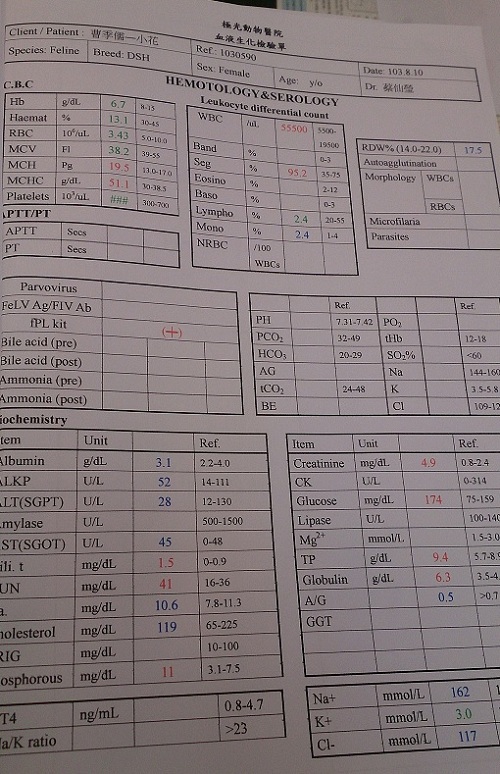 極光動物醫院
血液生化檢驗單
Client / Patient : 曹季儒—小花
Species: Feline Breed: DSH Ref.: 1030590
Sex: Female Age: y/o Date: 103.8.10
Dr.
HEMOTOLOGY&SEROLOGY
C.B.C
Hb g/dL 6.7 8-15
Haemat % 13.1 30-45
RBC 10⁶/uL 3.43 5.0-10.0
MCV Fl 38.2 39-55
MCH Pg 19.5 13.0-17.0
MCHC g/dL 51.1 30-38.5
Platelets 10³/uL ### 300-700
APTT/PT
APTT Secs
PT Secs
Leukocyte differential count
WBC /uL 55500 5500-19500
Band % 0-3
Seg % 95.2 35-75
Eosino % 2-12
Baso % 0-3
Lympho % 2.4 20-55
Mono % 2.4 1-4
NRBC /100 WBCs
RDW% (14.0-22.0) 17.5
Autoagglutination
Morphology WBCs
RBCs
Microfilaria
Parasites
Parvovirus
FeLV Ag/FIV Ab
fPL kit (+)
Bile acid (pre)
Bile acid (post)
Ammonia (pre)
Ammonia (post)
Ref. Ref.
PH 7.31-7.42 PO₂
PCO₂ 32-49 tHb 12-18
HCO₃ 20-29 SO₂% <60
AG Na 144-160
tCO₂ 24-48 K 3.5-5.8
BE Cl 109-12
iochemistry
tem Unit Ref.
Albumin g/dL 3.1 2.2-4.0
ALKP U/L 52 14-111
ALT(SGPT) U/L 28 12-130
mylase U/L 500-1500
ST(SGOT) U/L 45 0-48
ili. t mg/dL 1.5 0-0.9
UN mg/dL 41 16-36
a. mg/dL 10.6 7.8-11.3
holesterol mg/dL 119 65-225
RIG mg/dL 10-100
osphorous mg/dL 11 3.1-7.5
T4 ng/mL 0.8-4.7
a/K ratio >23
Item Unit Ref.
Creatinine mg/dL 4.9 0.8-2.4
CK U/L 0-314
Glucose mg/dL 174 75-159
Lipase U/L 100-140
Mg²⁺ mmol/L 1.5-3.0
TP g/dL 9.4 5.7-8.9
Globulin g/dL 6.3 3.5-4.
A/G 0.5 >0.7
GGT
Na+ mmol/L 162
K+ mmol/L 3.0
Cl- mmol/L 117